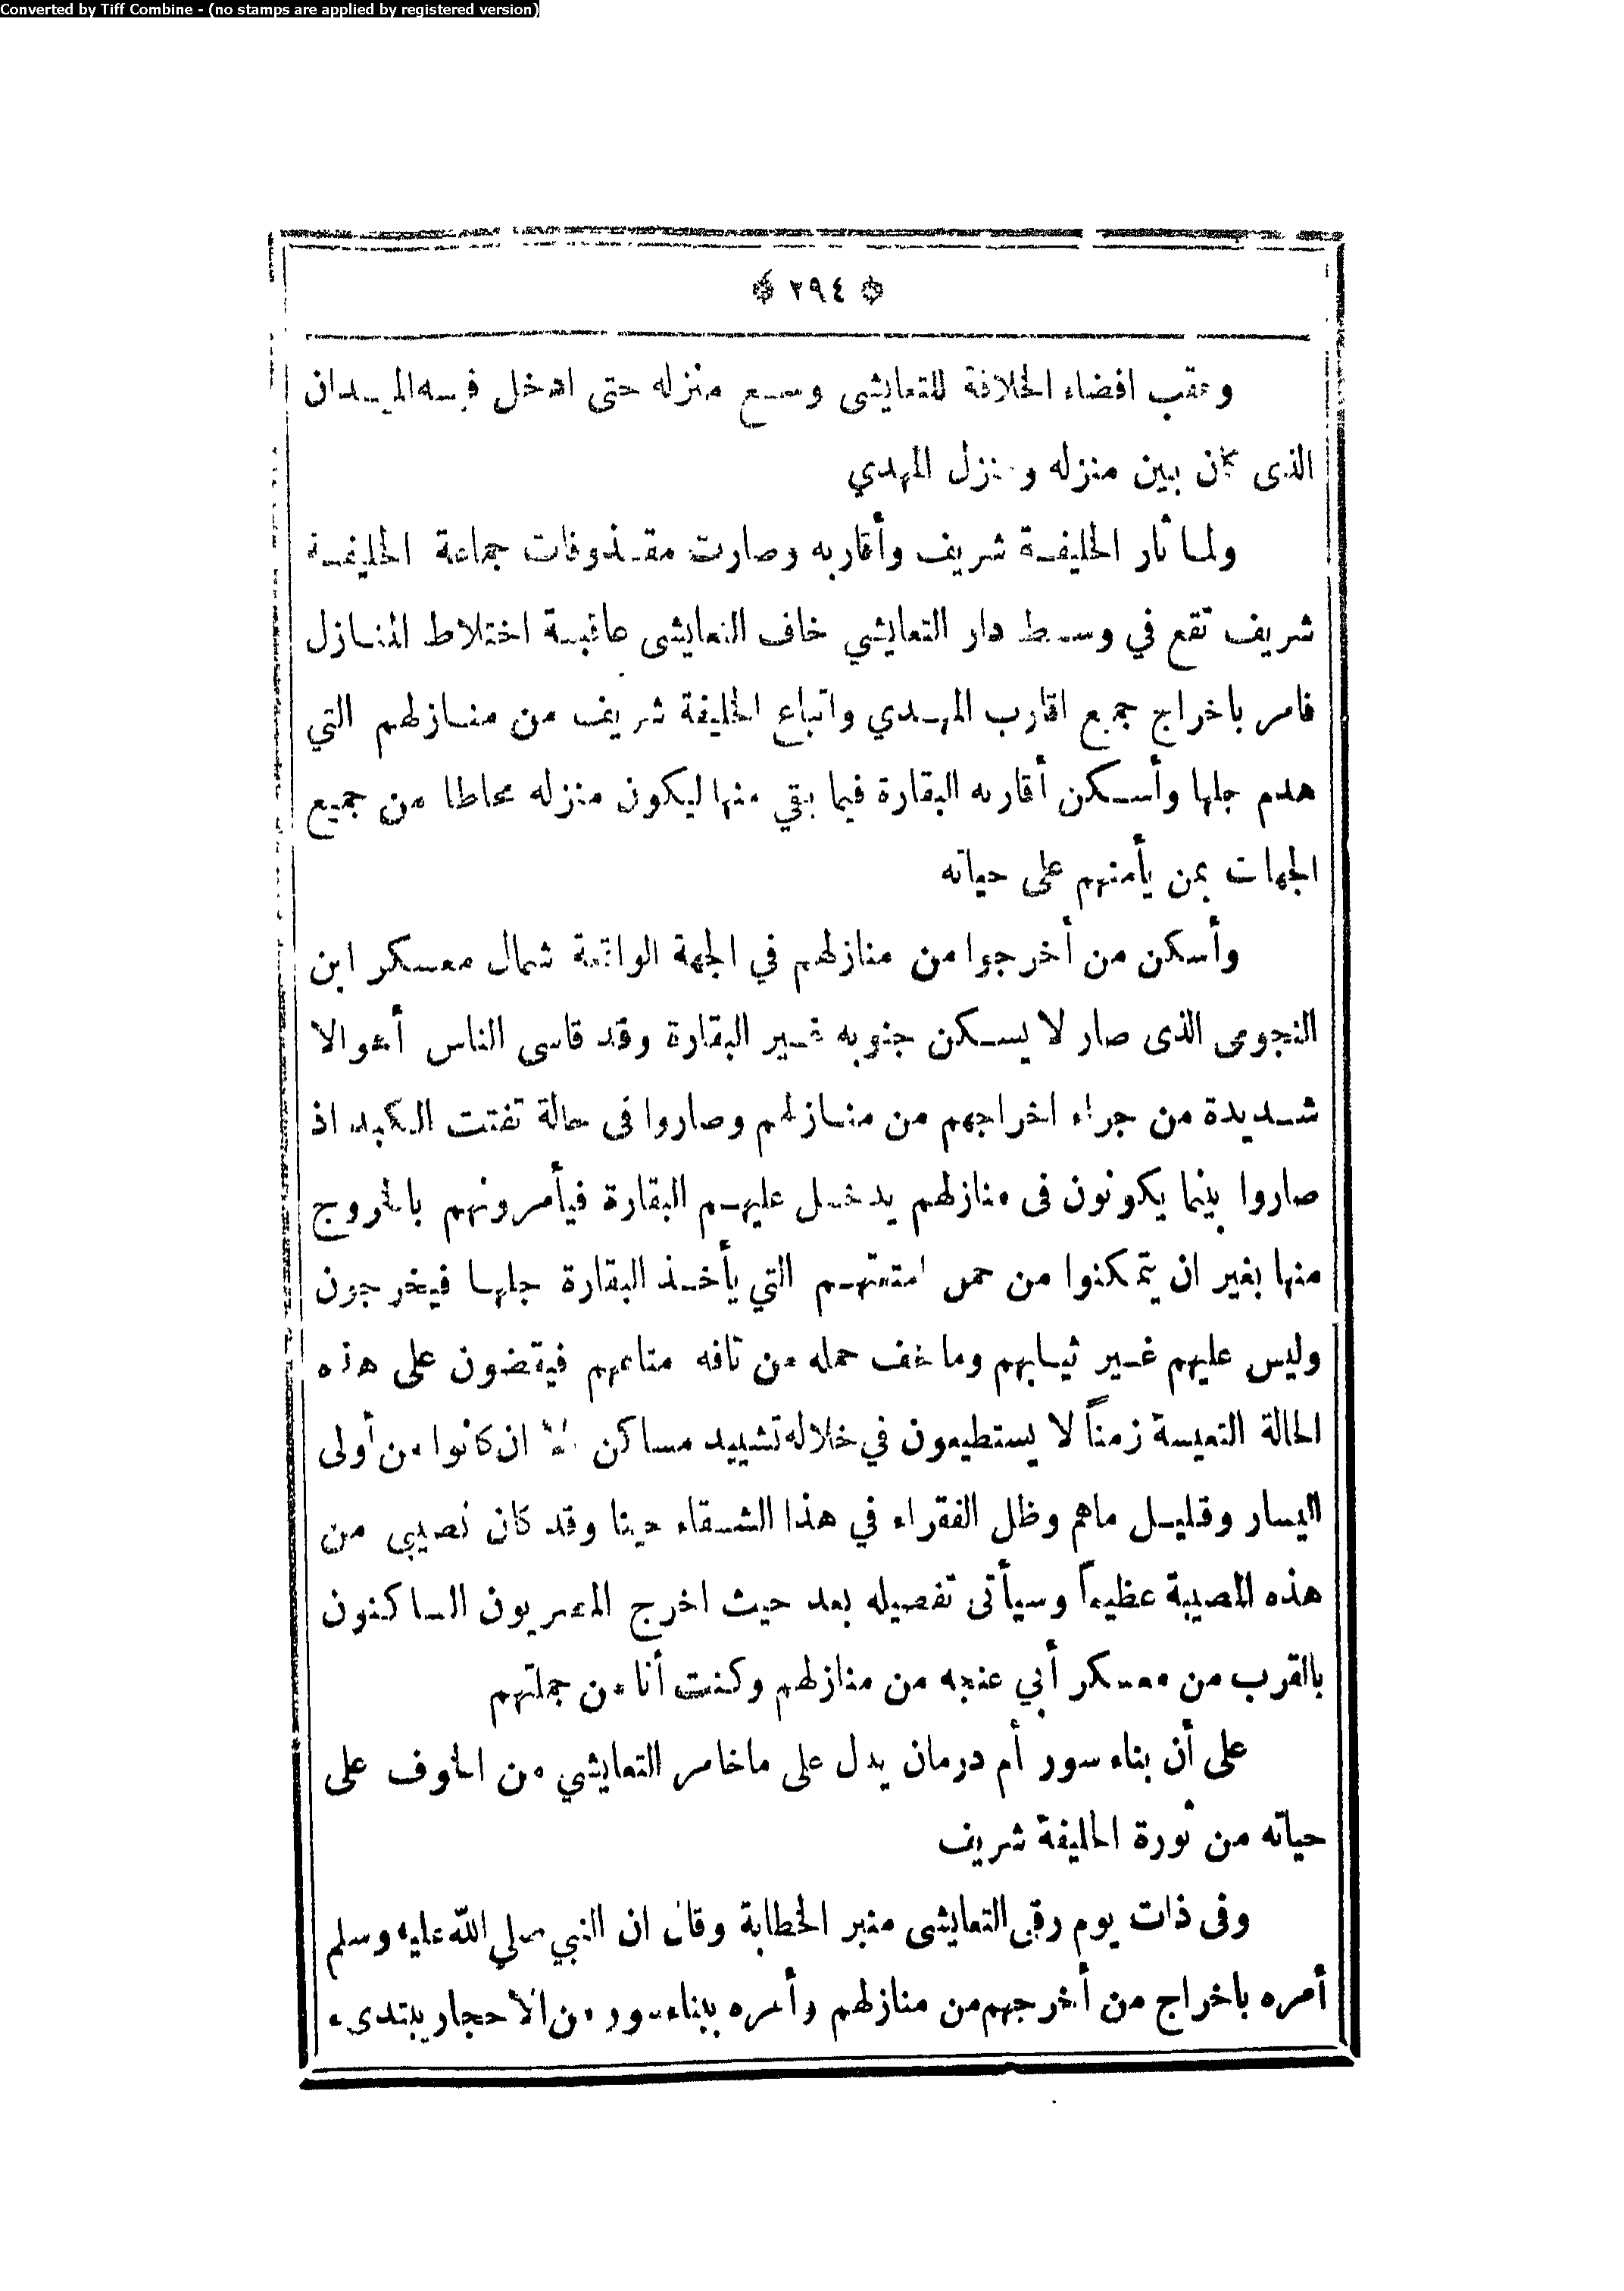 Converted by Tiff Combine - (no stamps are applied by registered version)
﴿ ٢٩٤ ﴾
وعقب افضاء الخلافة للتعايشى وسع منزله حتى ادخل فيه الميدان
الذى كان بين منزله ومنزل المهدي
ولما ثار الخليفة شريف وأقاربه وصارت مقذوفات جماعة الخليفة
شريف تقع في وسط دار التعايشي خاف التعايشى عاقبة اختلاط المنازل
فامر باخراج جميع اقارب المهدي واتباع الخليفة شريف من منازلهم التي
هدم جلها وأسكن أقاربه البقارة فيما بقي منها ليكون منزله محاطا من جميع
الجهات بمن يأمنهم على حياته
وأسكن من أخرجوا من منازلهم في الجهة الواقعة شمال معسكر ابن
النجومى الذى صار لا يسكن جنوبه غير البقارة وقد قاسى الناس أهوالا
شديدة من جراء اخراجهم من منازلهم وصاروا فى حالة تفتت الكبد اذ
صاروا بينما يكونون فى منازلهم يدخل عليهم البقارة فيأمرونهم بالخروج
منها بغير ان يتمكنوا من حمل امتعتهم التي يأخذ البقارة جلها فيخرجون
وليس عليهم غير ثيابهم وما خف حمله من تافه متاعهم فيقضون على هذه
الحالة التعيسة زمناً لا يستطيعون في خلاله تشييد مساكن ان كانوا من أولى
اليسار وقليل ماهم وظل الفقراء في هذا الشقاء حينا وقد كان نصيبى من
هذه المصيبة عظيماً وسيأتى تفصيله بعد حيث اخرج المصريون الساكنون
بالقرب من معسكر أبي عنجه من منازلهم وكنت أنا من جملتهم
على أن بناء سور أم درمان يدل على ماخامر التعايشي من الخوف على
حياته من ثورة الخليفة شريف
وفى ذات يوم رقى التعايشى منبر الخطابة وقال ان النبي صلي الله عليه وسلم
أمره باخراج من أخرجهم من منازلهم وأمره ببناء سور من الاحجار يبتدىء